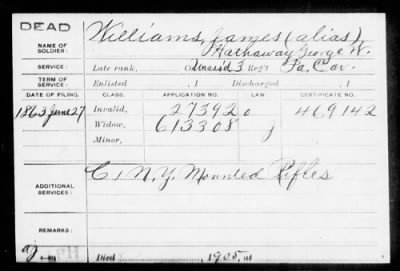 DEAD
NAME OF SOLDIER: Williams, James (alias)
Hathaway George W.
SERVICE: Late rank, Co Unasi'd 3 Reg't Pa, Cav.
TERM OF SERVICE: Enlisted , 1 Discharged , 1
DATE OF FILING. CLASS. APPLICATION NO. CERTIFICATE NO.
1863 June 27 Invalid, 27392 469142
Widow, 613308
Minor,
ADDITIONAL SERVICES: C, 1 N.Y. Mounted Rifles
REMARKS:
Died , 1905, at